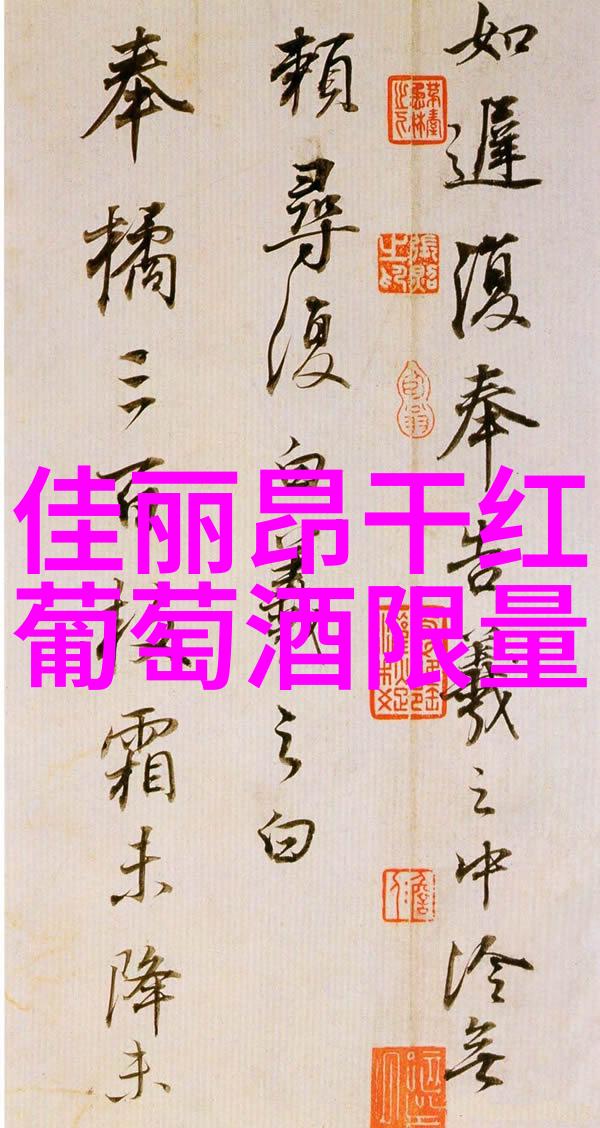 如遲復奉告羲之中冷無
賴尋復白羲之白
奉橘三百枚霜未降未
佳丽昂干红
葡萄酒限量